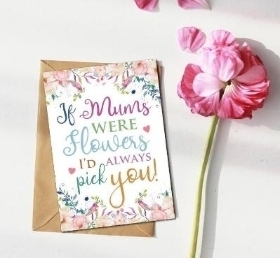 If Mums
WERE
Flowers
I'D ALWAYS
pick you!